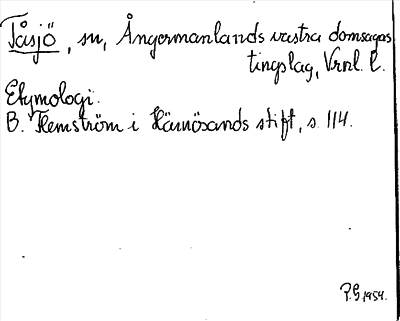 Tåsjö, sn, Ångermanlands västra domsagas
tingslag, Vrnl. l.
Etymologi.
B. Flemström i Härnösands stift, s. 114.
P.G. 1954.